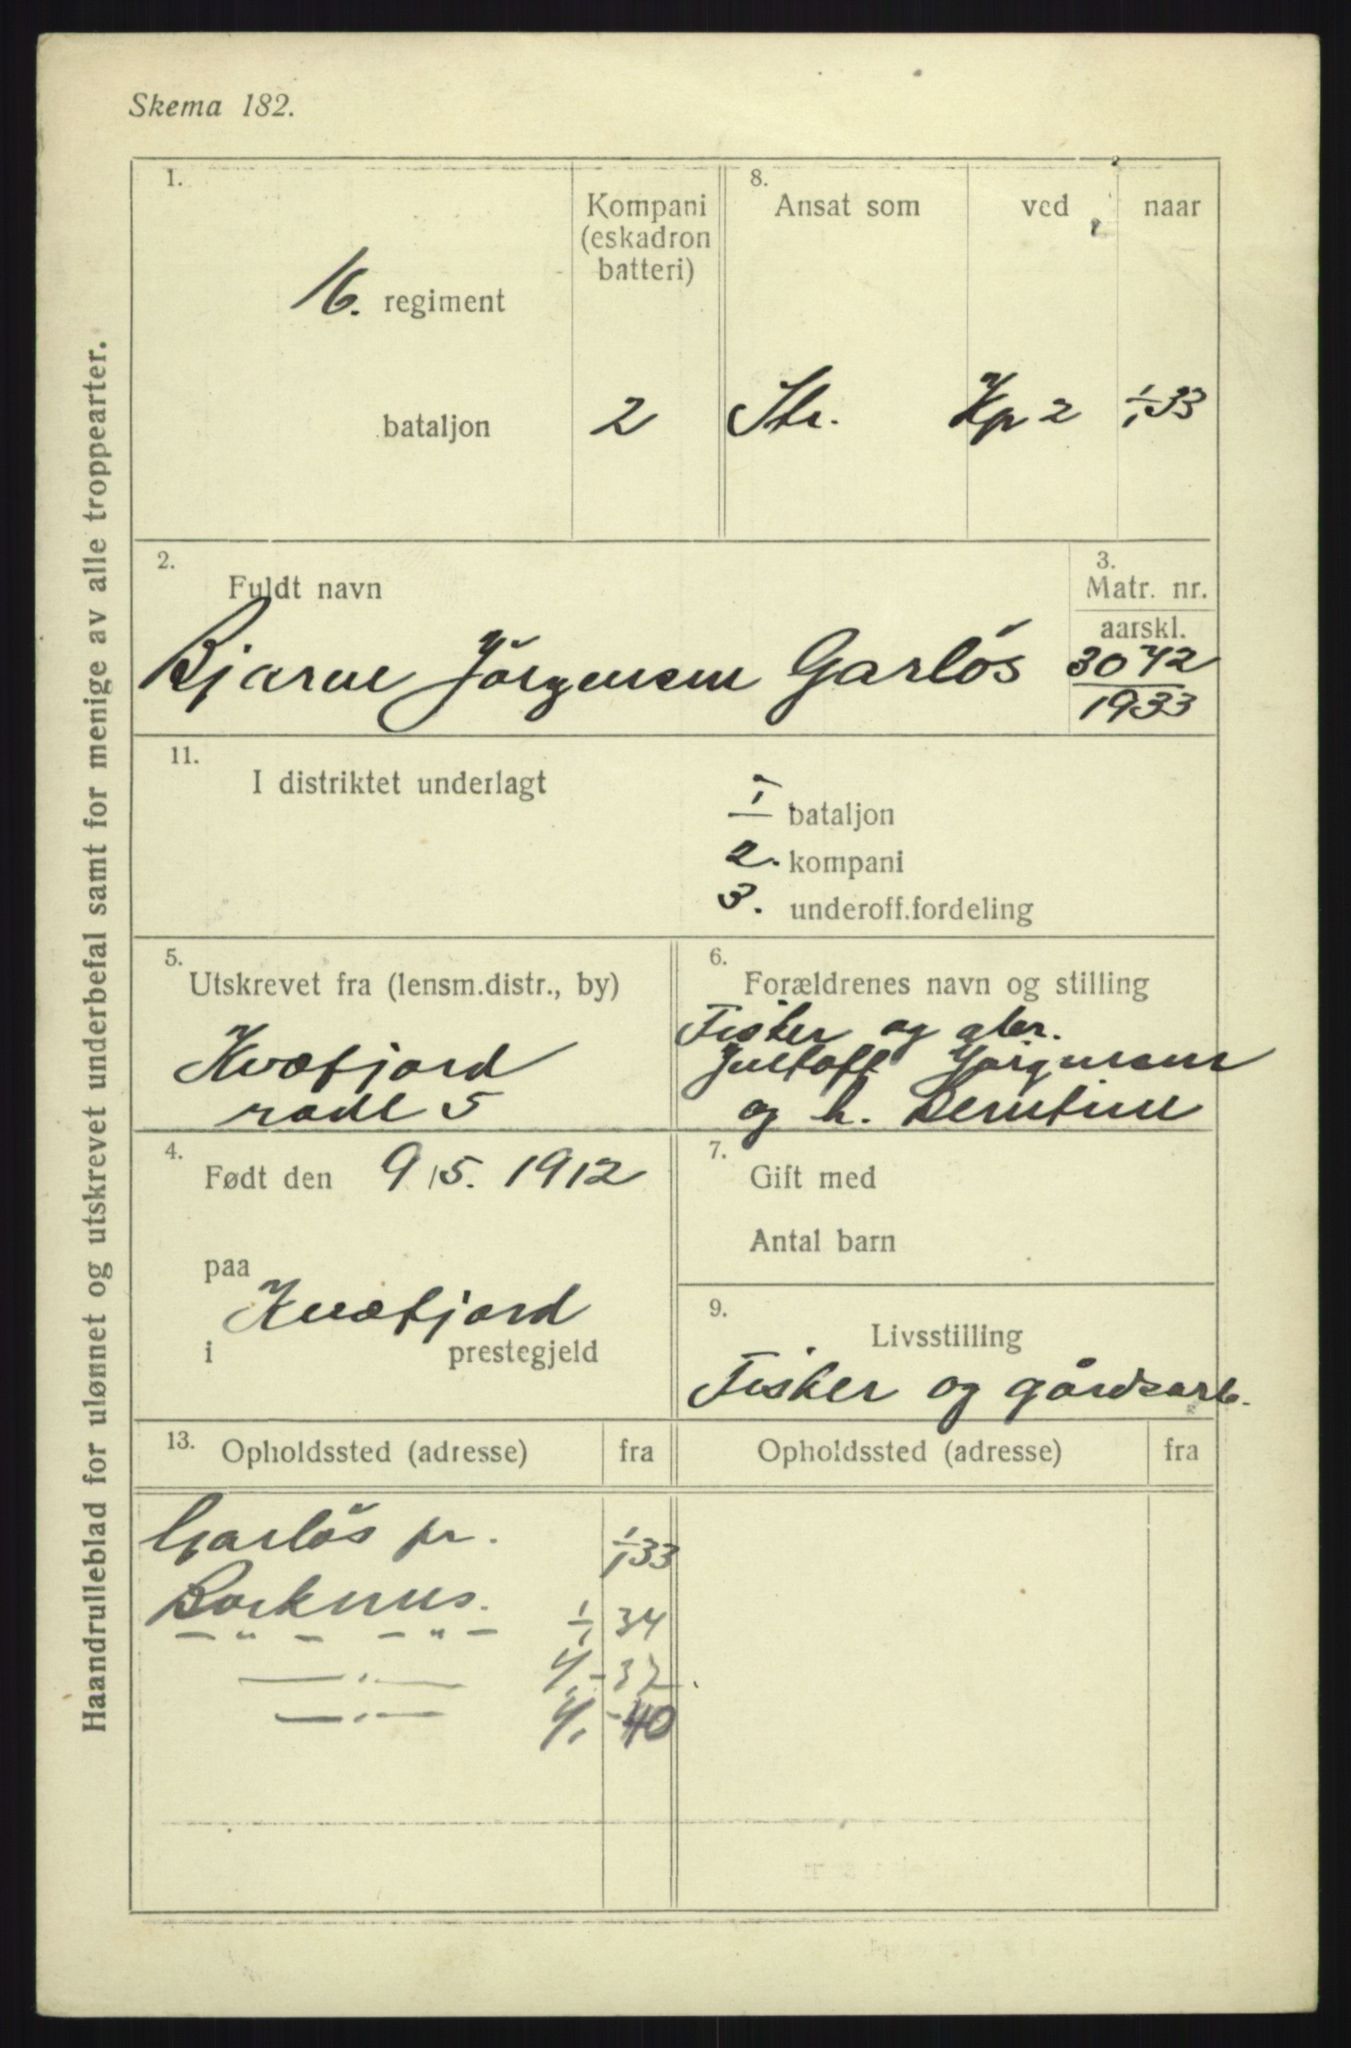 Skema 182.
Haandrulleblad for ulønnet og utskrevet underbefal samt for menige av alle troppearter.
1.
16. regiment
bataljon
Kompani
(eskadron
batteri)
2
8.
Ansat som
ved
naar
Str.
Kp 2
1/1 33
2.
Fuldt navn
Bjarne Jörgensen Garlös
3.
Matr. nr.
aarskl.
3042
1933
11.
I distriktet underlagt
I bataljon
2. kompani
3. underoff.fordeling
5.
Utskrevet fra (lensm.distr., by)
Kvæfjord
rode 5
6.
Forældrenes navn og stilling
Fisker og gbr.
Jörgensen
og h. Berntine
4.
Født den 9/5. 1912
paa
Kvæfjord
i prestegjeld
7.
Gift med
Antal barn
9.
Livsstilling
Fisker og gårdsarb.
13.
Opholdssted (adresse)
fra
Opholdssted (adresse)
fra
Garlös pr. 1/1 33
Borkenes.
— " — — " — 1/1 34
— . — 1/1 - 37.
— . — 1/1 - 40